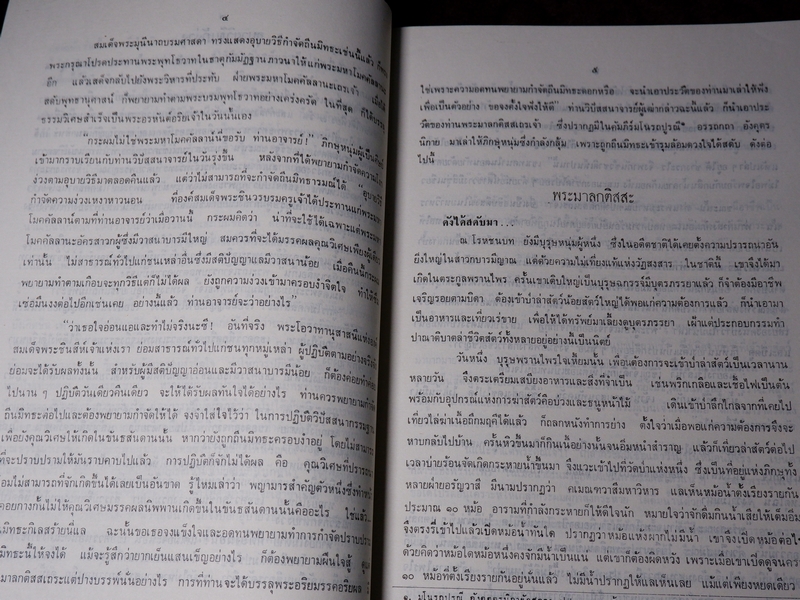 ๔
สมเด็จพระมุนีนาถบรมศาสดา ทรงแสดงอุบายวิธีกำจัดถีนมิทธะเช่นนี้แล้ว
พระกรุณาโปรดประทานพระพุทโธวาทในธาตุกัมมัฏฐาน ภาวนาให้แก่พระมหาโมคคัลลานะ
อีก แล้วเสด็จกลับไปยังพระวิหารที่ประทับ ฝ่ายพระมหาโมคคัลลานะเถรเจ้า เมื่อได้
สดับพุทธานุศาสน์ ก็พยายามทำตามพระบรมพุทโธวาทอย่างเคร่งครัด ในที่สุด ก็ได้บรรลุ
ธรรมวิเศษสำเร็จเป็นพระอรหันต์อริยเจ้าในวันนั้นเอง
“กระผมไม่ใช่พระมหาโมคคัลลาน์นี่ขอรับ ท่านอาจารย์!” ภิกษุหนุ่มผู้เป็นศิษย์
เข้ามากราบเรียนกับท่านวิปัสสนาจารย์ในวันรุ่งขึ้น หลังจากที่ได้พยายามกำจัดความ
ง่วงตามอุบายวิธีมาตลอดคืนแล้ว แต่ว่าไม่สามารถที่จะกำจัดถีนมิทธารมณ์ได้ “อุบายวิธี
กำจัดความง่วงเหงาหาวนอน ที่องค์สมเด็จพระชินวรบรมครูเจ้าได้ประทานแก่พระมหา
โมคคัลลาน์ตามที่ท่านอาจารย์ว่าเมื่อวานนี้ กระผมคิดว่า น่าที่จะใช้ได้เฉพาะแต่พระมหา
โมคคัลลานะอัครสาวกผู้ซึ่งมีวาสนาบารมีใหญ่ สมควรที่จะได้มรรคผลคุณวิเศษเพียงผู้เดียว
เท่านั้น ไม่สาธารณ์ทั่วไปแก่ชนเหล่าอื่นซึ่งมีสติปัญญาแลมีวาสนาน้อย เมื่อคืนนี้กระผม
พยายามทำตามเกือบจะทุกวิธีแต่ก็ไม่ได้ผล ยังถูกความง่วงเข้ามาครอบงำจิตใจ ทำให้
เซ่อมึนงงต่อไปอีกเช่นเคย อย่างนี้แล้ว ท่านอาจารย์จะว่าอย่างไร”
“ว่าเธอใจอ่อนแอและทำไม่จริงนะซี! อันที่จริง พระโอวาทานุสาสนีแห่งองค์
สมเด็จพระชินสีห์เจ้าแห่งเรา ย่อมสาธารณ์ทั่วไปแก่ชนทุกหมู่เหล่า ผู้ปฏิบัติตามอย่างจริงจัง
ย่อมจะได้รับผลทั้งนั้น สำหรับผู้มีสติปัญญาอ่อนและมีวาสนาบารมีน้อย ก็ต้องคอยทำต่อ
ไปนาน ๆ ปฏิบัติวันเดียวคืนเดียว จะให้ได้รับผลทันใจได้อย่างไร ท่านควรพยายามกำจัด
ถีนมิทธะต่อไปและต้องพยายามกำจัดให้ได้ จงจำใส่ใจไว้ว่า ในการปฏิบัติวิปัสสนากรรมฐาน
เพื่อยังคุณวิเศษให้เกิดในขันธสันดานนั้น หากว่ายังถูกถีนมิทธะครอบงำอยู่ โดยไม่สามารถ
ที่จะปราบปรามให้มันราบคาบไปแล้ว การปฏิบัติก็จักไม่ได้ผล คือ คุณวิเศษที่ปรารถนา
ย่อมไม่สามารถที่จักเกิดขึ้นได้เลยเป็นอันขาด รู้ไหมเล่าว่า พญามารสำคัญตัวหนึ่งซึ่งทำหน้า
คอยกางกั้นไม่ให้คุณวิเศษมรรคผลนิพพานเกิดขึ้นในขันธสันดานนั้นคืออะไร ใช่แล้ว...
มิทธะกิเลสร้ายนี่แล ฉะนั้นขอเธอจงแข็งใจและอดทนพยายามทำการกำจัดปราบปราม
นมิทธะนี้ให้จงได้ แม้จะรู้สึกว่ายากเย็นแสนเข็ญอย่างไร ก็ต้องพยายามฝืนใจสู้ ดูแต่
มาลกติสสเถระแต่ปางบรรพ์นั้นอย่างไร การที่ท่านจะได้บรรลุพระอริยมรรคอริยผล
๕
ใช่เพราะความอดทนพยายามกำจัดถีนมิทธะดอกหรือ จะนำเอาประวัติของท่านมาเล่าให้ฟัง
เพื่อเป็นตัวอย่าง ขอจงตั้งใจฟังให้ดี” ท่านวิปัสสนาจารย์ผู้เฒ่ากล่าวฉะนี้แล้ว ก็นำเอาประ
วัติของท่านพระมาลกติสสเถรเจ้า ซึ่งปรากฏมีในคัมภีร์มโนรถปูรณี อรรถกถา อังคุตร
นิกาย มาเล่าให้ภิกษุหนุ่มซึ่งกำลังกลุ้ม เพราะถูกถีนมิทธะเข้ารุมล้อมดวงใจได้สดับ ดังต่อ
ไปนี้
พระมาลกติสสะ
ดังได้สดับมา...
ณ โรหชนบท ยังมีบุรุษหนุ่มผู้หนึ่ง ซึ่งในอดีตชาติได้เคยตั้งความปรารถนาอัน
ยิ่งใหญ่ในสาวกบารมีญาณ แต่ด้วยความไม่เที่ยงแท้แห่งวัฏสงสาร ในชาตินี้ เขาจึงได้มา
เกิดในตระกูลพรานไพร ครั้นเขาเติบใหญ่เป็นบุรุษฉกรรจ์มีบุตรภรรยาแล้ว ก็จำต้องมีอาชีพ
เจริญรอยตามบิดา ต้องเข้าป่าล่าสัตว์น้อยสัตว์ใหญ่ได้พอแก่ความต้องการแล้ว ก็นำเอามา
เป็นอาหารและเที่ยวเร่ขาย เพื่อให้ได้ทรัพย์มาเลี้ยงดูบุตรภรรยา เฝ้าแต่ประกอบกรรมทำ
ปาณาติบาตล้างชีวิตสัตว์ทั้งหลายอยู่อย่างนี้เป็นนิตย์
วันหนึ่ง บุรุษพรานไพรใจเหี้ยมนั้น เพื่อนต้องการจะเข้าป่าล่าสัตว์เป็นเวลานาน
หลายวัน จึงตระเตรียมเสบียงอาหารและสิ่งที่จำเป็น เช่นพริกเกลือและเชื้อไฟเป็นต้น
พร้อมกับอุปกรณ์แห่งการฆ่าสัตว์คือบ่วงและธนูหน้าไม้ เดินเข้าป่าลึกไกลจากที่เคยไป
เที่ยวไล่ฆ่าเนื้อถึกมฤคีได้แล้ว ก็ถลกหนังทำการย่าง ตั้งใจว่าเมื่อพอแก่ความต้องการจึงจะ
หาบกลับไปบ้าน ครั้นหิวขึ้นมาก็กินเนื้อย่างนั้นจนอิ่มหนำสำราญ แล้วก็เที่ยวล่าสัตว์ต่อไป
เวลาบ่ายร้อนจัดเกิดกระหายน้ำขึ้นมา จึงแวะเข้าไปที่วัดป่าแห่งหนึ่ง ซึ่งเป็นที่อยู่แห่งภิกษุทั้ง
หลายฝ่ายอรัญวาสี มีนามปรากฏว่า คเมณฑวาสีมหาวิหาร แลเห็นหม้อน้ำตั้งเรียงรายกัน
ประมาณ ๑๐ หม้อ อารามที่กำลังกระหายก็ให้ดีใจนัก หมายใจว่าจักดื่มกินน้ำเสียให้เต็มอิ่ม
จึงตรงรี่เข้าไปแล้วเปิดหม้อน้ำทันใด ปรากฏว่าหม้อแห่งผากไม่มีน้ำ เขาจึงเปิดหม้อต่อไป
ด้วยคิดว่าหม้อใดหม้อหนึ่งคงจักมีน้ำเป็นแน่ แต่เขาก็ต้องผิดหวัง เพราะเมื่อเขาเปิดดูจนครบ
๑๐ หม้อที่ตั้งเรียงรายกันอยู่นั่นแล้ว ไม่มีน้ำปรากฏให้แลเห็นเลย แม้แต่เพียงหยดเดียว